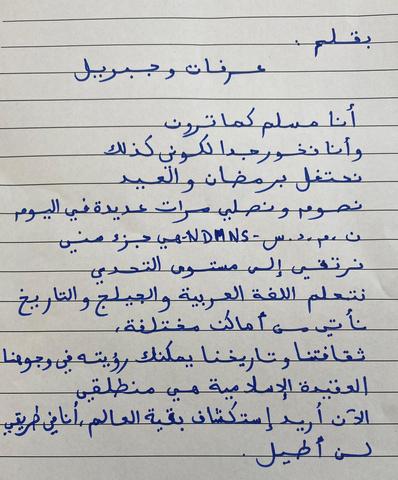 بقلم :
عرفات وجبريل
أنا مسلم كما ترون
وأنا فخور جدا لكوني كذلك
نحتفل برمضان والعيد
نصوم ونصلي مرات عديدة في اليوم
ن.م.د.س-NDMNS-هي جزء مني
نرتقي إلى مستوى التحدي
نتعلم اللغة العربية والجيلج والتاريخ
نأتي من أماكن مختلفة،
ثقافتنا وتاريخنا يمكنك رؤيته في وجوهنا
العقيدة الإسلامية هي منطلقي
الآن أريد إستكشاف بقية العالم، أنا في طريقي
لن أطيل.